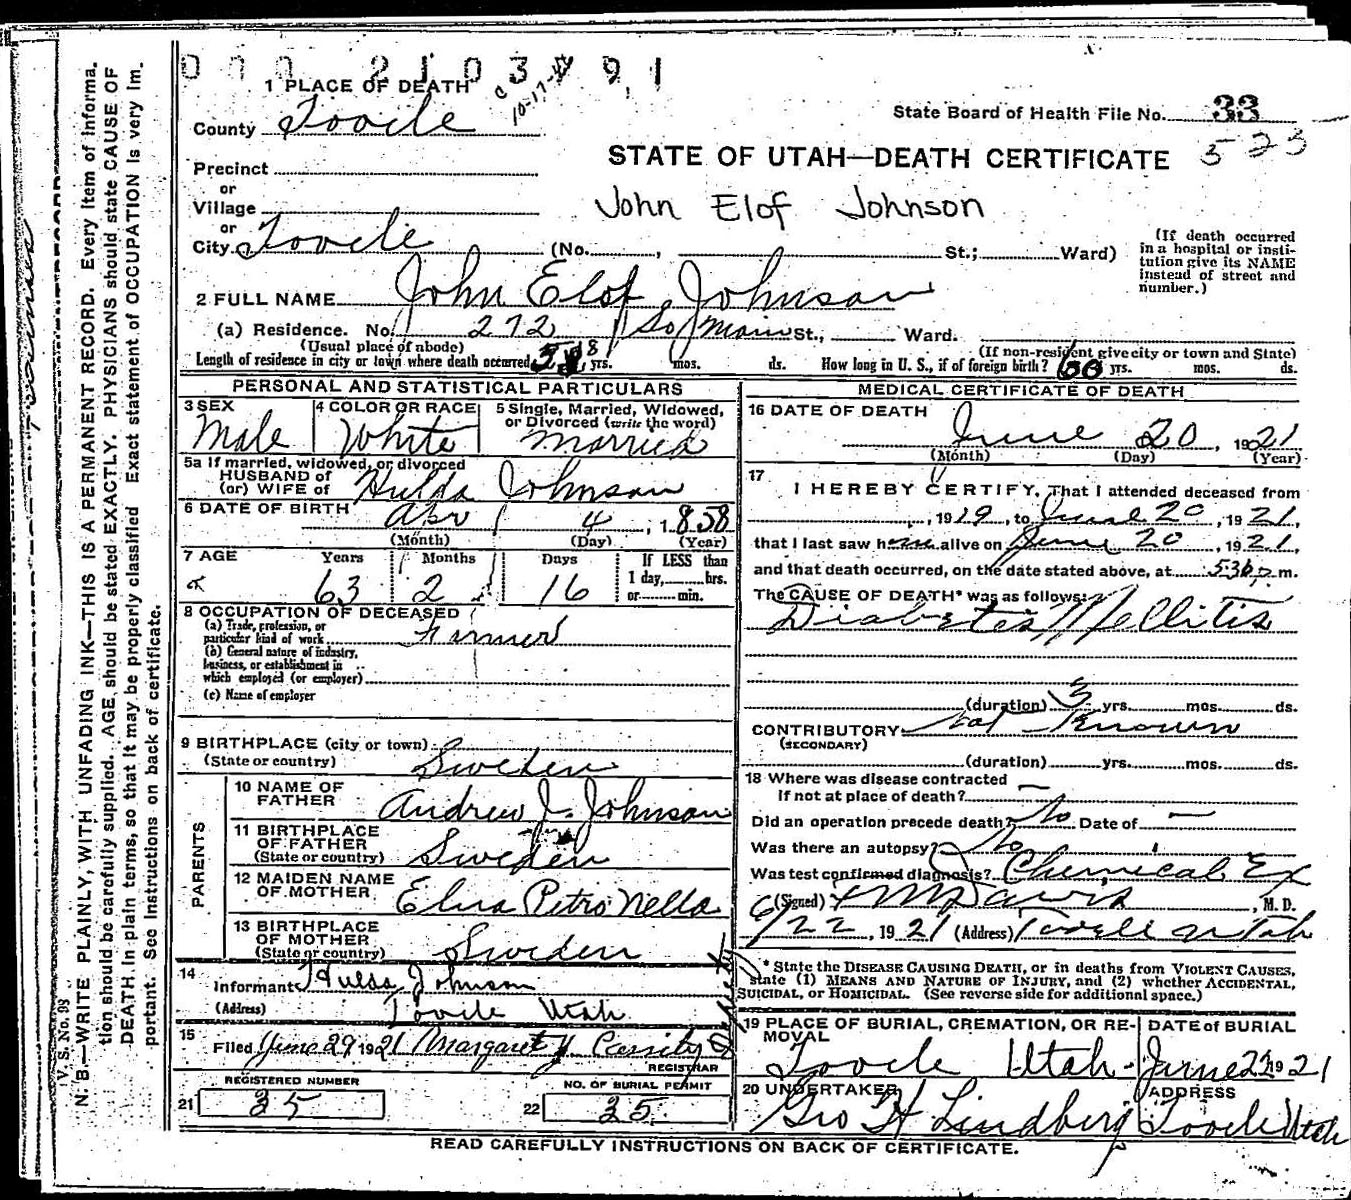 000 2103 91
1 PLACE OF DEATH
10-17-
State Board of Health File No. 33
523
County Tooele
STATE OF UTAH—DEATH CERTIFICATE
Precinct
or
Village
John Elof Johnson
or
City Tooele (No. , St.; Ward)
(If death occurred in a hospital or insti-
tution give its NAME
instead of street and
number.)
2 FULL NAME John Elof Johnson
(a) Residence. No. 272 So Main St., Ward.
(Usual place of abode) (If non-resident give city or town and State)
Length of residence in city or town where death occurred 58 yrs. mos. ds. How long in U. S., if of foreign birth? 60 yrs. mos. ds.
PERSONAL AND STATISTICAL PARTICULARS
3 SEX Male
4 COLOR OR RACE White
5 Single, Married, Widowed,
or Divorced (write the word)
Married
5a If married, widowed, or divorced
HUSBAND of
(or) WIFE of Hulda Johnson
6 DATE OF BIRTH Apr 4, 1858
(Month) (Day) (Year)
7 AGE Years Months Days If LESS than
63 2 16 1 day, hrs.
or min.
8 OCCUPATION OF DECEASED
(a) Trade, profession, or
particular kind of work Farmer
(b) General nature of industry,
business, or establishment in
which employed (or employer)
(c) Name of employer
9 BIRTHPLACE (city or town)
(State or country) Sweden
PARENTS
10 NAME OF
FATHER Andrew J. Johnson
11 BIRTHPLACE
OF FATHER
(State or country) Sweden
12 MAIDEN NAME
OF MOTHER Elna Petro Nella
13 BIRTHPLACE
OF MOTHER
(State or country) Sweden
14
Informant Hulda Johnson
(Address) Tooele Utah
15 Filed June 29 1921 Margaret Y Cassity
REGISTRAR
Deputy
REGISTERED NUMBER
21 35
NO. OF BURIAL PERMIT
22 35
MEDICAL CERTIFICATE OF DEATH
16 DATE OF DEATH
June 20, 1921
(Month) (Day) (Year)
17
I HEREBY CERTIFY, That I attended deceased from
, 1919, to June 20, 1921,
that I last saw him alive on June 20, 1921,
and that death occurred, on the date stated above, at 5:30 p.m.
The CAUSE OF DEATH* was as follows:
Diabetis Mellitis
(duration) 3 yrs. mos. ds.
CONTRIBUTORY Not Known
(SECONDARY)
(duration) yrs. mos. ds.
18 Where was disease contracted
If not at place of death? —
Did an operation precede death? No Date of —
Was there an autopsy? No
Was test confirmed diagnosis? Chemical Ex
(Signed) M Davis, M. D.
6/22, 1921 (Address) Tooele Utah
* State the DISEASE CAUSING DEATH, or in deaths from VIOLENT CAUSES,
state (1) MEANS AND NATURE OF INJURY, and (2) whether ACCIDENTAL,
SUICIDAL, or HOMICIDAL. (See reverse side for additional space.)
19 PLACE OF BURIAL, CREMATION, OR RE-
MOVAL
Tooele Utah
DATE of BURIAL
June 22 1921
20 UNDERTAKER
Geo H Lindberg
ADDRESS
Tooele Utah
READ CAREFULLY INSTRUCTIONS ON BACK OF CERTIFICATE.
V. S. No. 98
N. B.—WRITE PLAINLY, WITH UNFADING INK—THIS IS A PERMANENT RECORD. Every item of informa-
tion should be carefully supplied. AGE should be stated EXACTLY. PHYSICIANS should state CAUSE OF
DEATH in plain terms, so that it may be properly classified. Exact statement of OCCUPATION is very im-
portant. See instructions on back of certificate.